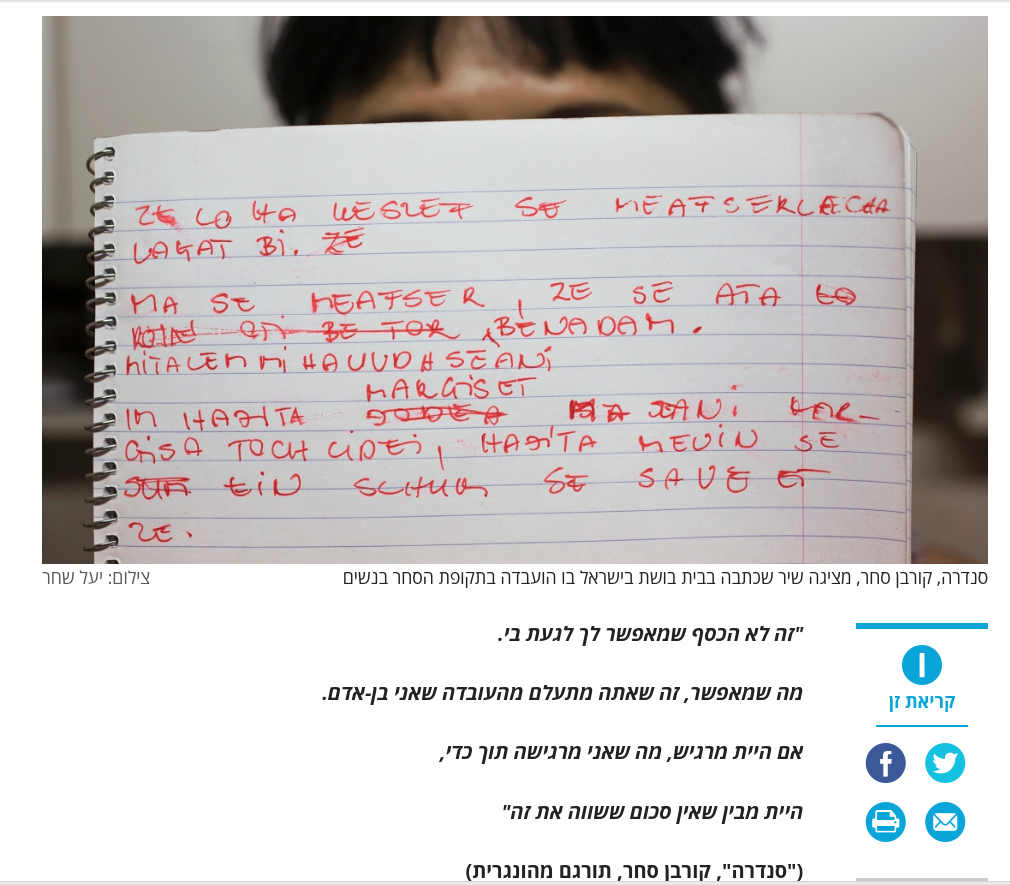 ZE LO HA KESZEF SE MEAFSERLECHA
LAGAT BI. ZE
MA SE MEAFSER, ZE SE ATA LO
BE TOR BENADAM.
MITALEM MI HAUUDA SEANI
MARGIS ET
IM HAJITA JODEA MA SANI MAR-
GISA TOCH CIDEI, HAJITA MEVIN SE
EIN SCHUM SE SAVE ET
ZE.
סנדרה, קורבן סחר, מציגה שיר שכתבה בבית בושת בישראל בו הועבדה בתקופת הסחר בנשים
צילום: יעל שחר
"זה לא הכסף שמאפשר לך לגעת בי.
מה שמאפשר, זה שאתה מתעלם מהעובדה שאני בן-אדם.
אם היית מרגיש, מה שאני מרגישה תוך כדי,
היית מבין שאין סכום ששווה את זה"
("סנדרה", קורבן סחר, תורגם מהונגרית)
קריאת זן